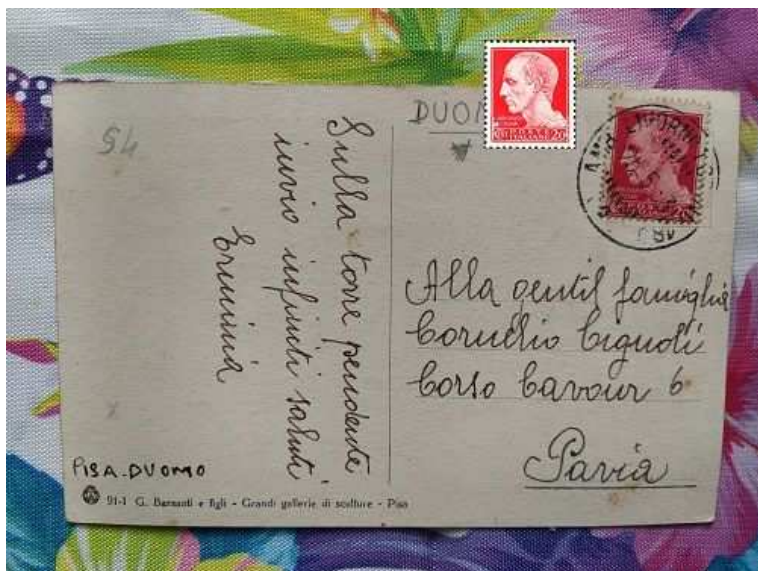 54
DUO
Sulla torre pendente
invio infiniti saluti
Erminia
Alla gentil famiglia
Cornelio Cignoli
Corso Cavour 6
Pavia
PISA-DUOMO
91-1 G. Barsanti e figli - Grandi gallerie di sculture - Pisa
POSTE
ITALIANE
20